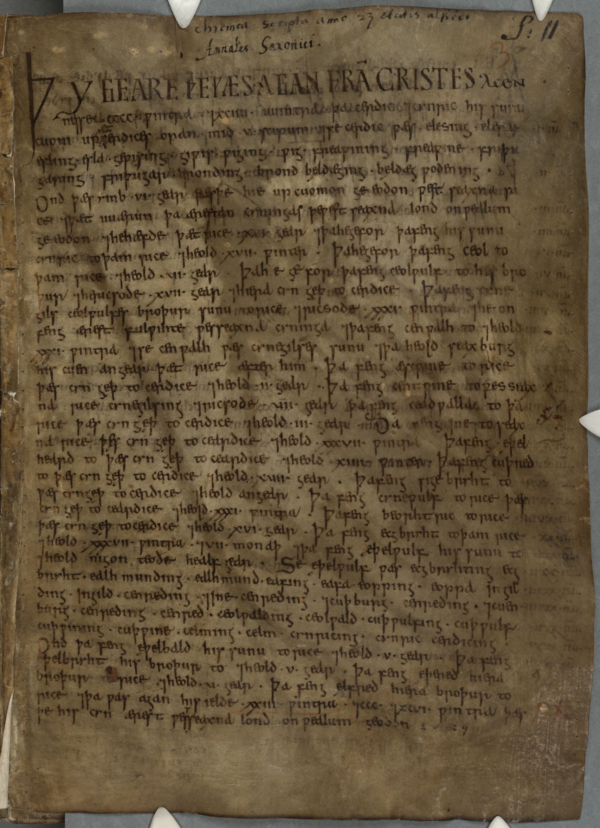 chronica scripta anno 23 etatis alfredi
S: 11
Annales Saxonici.
ÞY GEARE ÞE WÆS AGAN FRÃ CRISTES ACEN
nesse .cccc. wintra 7 xciiii uuintra. þa cerdic 7 cynric his sunu
cuom up æt cerdices oran mid .v. scipum. 7 se cerdic wæs elesing. elesa
esling. esla gewising. giwis wiging. wig freawining. freawine friþu
garing. friþugar bronding. brond bældæging. bældæg wodening.
Ond þæs ymb .vi. gear þæs þe hie up cuomon ge eodon west seaxna ri
ce. 7 þæt uuærun þa ærestan cyningas þe west seaxna lond on wealum
ge eodon. 7 he hæfde þæt rice .xvi. gear 7 þa he gefor þa feng his sunu
cynric to þam rice 7 heold .xvii. winter. Þa he gefor þa feng ceol to
þam rice 7 heold .vi. gear. Þa he gefor þa feng ceolwulf to his bro
þur 7 he ricsode .xvii. gear 7 hiera cyn gęþ to cerdice. Þa feng cyne
gils ceolwulfes broþur sunu to rice 7 ricsode .xxxi. wintra 7 he on
feng ærest fulwihte wesseaxna cyninga 7 þa feng cenwalh to 7 heold
.xxxi. wintra 7 se cenwalh wæs cynegilses sunu 7 þa heold seaxburg
his cuen an gear þæt rice æfter him. Þa feng æscwine to rice
þæs cyn gęþ to cerdice 7 heold .ii. gear. Þa feng centwine to wesseax
na rice cynegilsing 7 ricsode .vii. gear Þa feng ceadwalla to þam
rice þæs cyn gęþ to cerdice 7 heold .iii. gear Ða feng ine to seax
na rice þæs cyn gęþ to cerdice 7 heold .xxxvii. wintra Þa feng æþel
heard to þæs cyn gęþ to cerdice 7 heold .xiiii. winter. Þa feng cuþred
to þæs cyn gęþ to cerdice 7 heold .xvii. gear. Þa feng sigebryht to
þæs cyn gęþ to cerdice 7 heold an gear. Þa feng cynewulf to rice þæs
cyn gęþ to cerdice 7 heold .xxxi. wintra. Þa feng beorhtric to rice
þæs cyn gęþ to cerdice 7 heold .xvi. gear. Þa feng ecgbryht to þam rice
7 heold .xxxvii. wintra. 7 .vii. monaþ 7 þa feng æþelwulf his sunu to
7 heold nigon teoðe healf gear. Se æþelwulf wæs ecgbryhting ecg
bryht. ealhmunding. ealhmund. eafing. eafa eopping. eoppa ingil
ding. ingild. cenreding. 7 ine cenreding. 7 cuþburg. cenreding. 7 cuen
burg. cenreding. cenred. ceolwalding. ceolwald. cuþwulfing. cuþwulf
cuþwining. cuþwine. celming. celm. cynricing. cynric cerdicing.
Ond þa feng æþelbald his sunu to rice 7 heold .v. gear. Þa feng
æþelbryht his broþur to 7 heold .v. gear. Þa feng æþered hiera
broþur to rice 7 heold .v. gear. Þa feng elfred hiera broþur to
rice 7 þa was agan his ielde .xxiii. wintra. 7 .ccc. 7 .xcvi. wintra þæs
þe his cyn ærest wesseaxna lond on wealum geodon